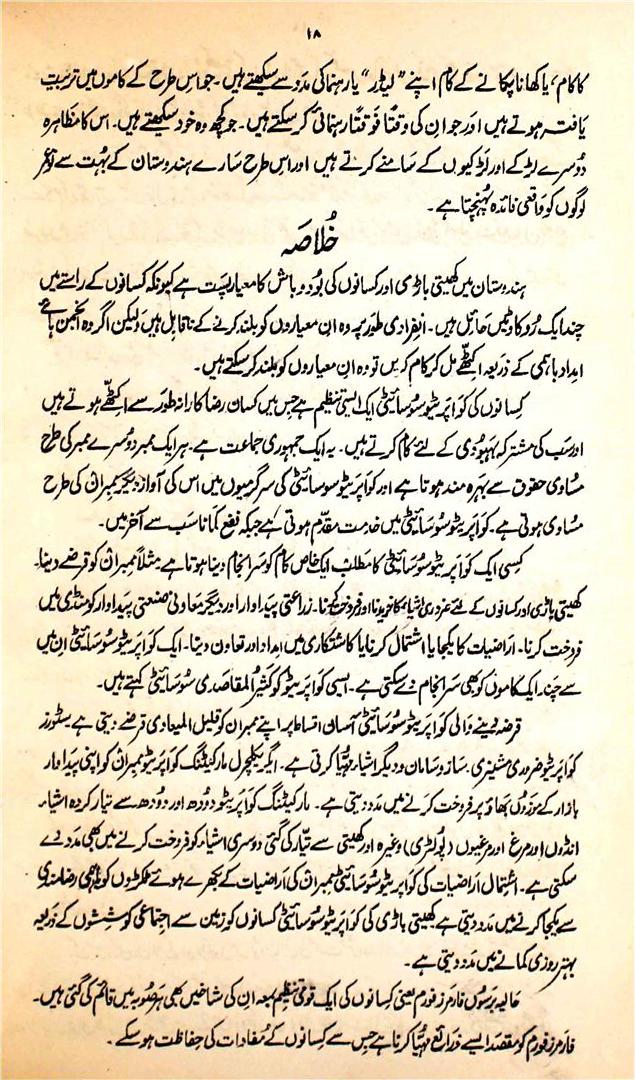 ۱۸
کا کام، یا کھانا پکانے کے کام اپنے “لیڈر” یا رہنما کی مدد سے سیکھتے ہیں۔ جو اس طرح کے کاموں میں تربیت
یافتہ ہوتے ہیں اور جو ان کی وقتاً فوقتاً رہنمائی کر سکتے ہیں۔ جو کچھ وہ خود سیکھتے ہیں۔ اس کا مظاہرہ
دوسرے لڑکے اور لڑکیوں کے سامنے کرتے ہیں اور اس طرح سارے ہندوستان کے بہت سے نوعمر
لوگوں کو واقعی فائدہ پہنچتا ہے۔
خلاصہ
ہندوستان میں کھیتی باڑی اور کسانوں کی بود و باش کا معیار پست ہے کیونکہ کسانوں کے راستے میں
چند ایک رکاوٹیں حائل ہیں۔ انفرادی طور پر وہ ان معیاروں کو بلند کرنے کے ناقابل ہیں ولیکن اگر وہ انجمن ہائے
امداد باہمی کے ذریعہ اکٹھے مل کر کام کریں تو وہ ان معیاروں کو بلند کر سکتے ہیں۔
کسانوں کی کواپریٹو سوسائیٹی ایک ایسی تنظیم ہے جس میں کسان رضا کارانہ طور سے اکٹھے ہوتے ہیں
اور سب کی مشترکہ بہبودی کے لئے کام کرتے ہیں۔ یہ ایک جمہوری جماعت ہے۔ ہر ایک ممبر دوسرے ممبر کی طرح
مساوی حقوق سے بہرہ مند ہوتا ہے اور کواپریٹو سوسائیٹی کی سرگرمیوں میں اس کی آواز دیگر ممبران کی طرح
مساوی ہوتی ہے۔ کواپریٹو سوسائیٹی میں خدمت مقدم ہوتی ہے جبکہ نفع کمانا سب سے آخر میں۔
کسی ایک کواپریٹو سوسائیٹی کا مطلب ایک خاص کام کو سرانجام دینا ہوتا ہے مثلاً ممبران کو قرضے دینا۔
کھیتی باڑی اور کسانوں کے لئے ضروری اشیاء کا خریدنا اور فروخت کرنا۔ زراعتی پیداوار اور دیگر معاونی صنعتی پیداوار کو منڈی میں
فروخت کرنا۔ اراضیات کا یکجا یا اشتمال کرنا یا کاشتکاری میں امداد اور تعاون دینا۔ ایک کواپریٹو سوسائیٹی ان میں
سے چند ایک کاموں کو بھی سرانجام دے سکتی ہے۔ ایسی کواپریٹو کو کثیر المقاصدی سوسائیٹی کہتے ہیں۔
قرضہ دینے والی کواپریٹو سوسائیٹی آسان اقساط پر اپنے ممبران کو قلیل المیعادی قرضے دیتی ہے سٹورز
کواپریٹو ضروری مشینری۔ ساز و سامان و دیگر اشیاء مہیا کرتی ہے۔ ایگریکلچرل مارکیٹنگ کواپریٹو ممبران کو اپنی پیداوار
بازار کے موزوں بھاؤ پر فروخت کرنے میں مدد دیتی ہے۔ مارکیٹنگ کواپریٹو دودھ اور دودھ سے تیار کردہ اشیاء۔
انڈوں اور مرغ اور مرغیوں (پولٹری) وغیرہ اور کھیتی سے تیار کی گئی دوسری اشیاء کو فروخت کرنے میں بھی مدد دے
سکتی ہے۔ اشتمال اراضیات کی کواپریٹو سوسائیٹی ممبران کی اراضیات کے بکھرے ہوئے ٹکڑوں کو باہمی رضامندی
سے یکجا کرنے میں مدد دیتی ہے کھیتی باڑی کی کواپریٹو سوسائیٹی کسانوں کو زمین سے اجتماعی کوششوں کے ذریعہ
بہتر روزی کمانے میں مدد دیتی ہے۔
حالیہ برسوں فارمرز فورم یعنی کسانوں کی ایک قومی تنظیم بمعہ ان کی شاخیں بھی ہر صوبہ میں قائم کی گئی ہیں۔
فارمرز فورم کو مقصد ایسے ذرائع مہیا کرنا ہے جس سے کسانوں کے مفادات کی حفاظت ہو سکے۔